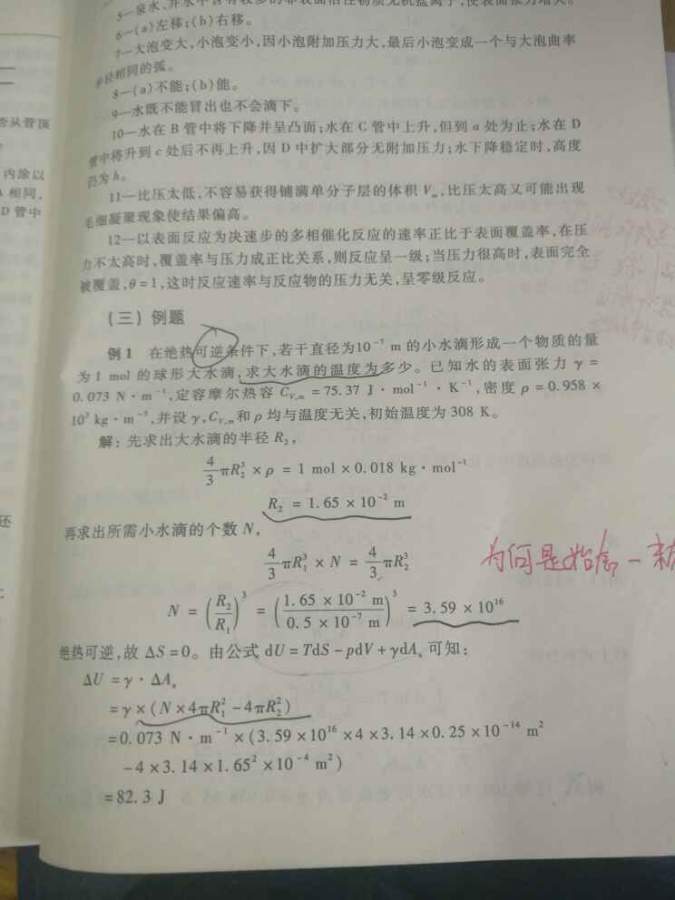 5—泉水、井水中含有较多的非表面活性物质无机盐离子,使表面张力增大。
6—(a)左移;(b)右移。
7—大泡变大,小泡变小,因小泡附加压力大,最后小泡变成一个与大泡曲率
半径相同的弧。
8—(a)不能;(b)能。
9—水既不能冒出也不会滴下。
10—水在 B 管中将下降并呈凸面;水在 C 管中上升,但到 a 处为止;水在 D
管中将升到 c 处后不再上升,因 D 中扩大部分无附加压力;水下降稳定时,高度
仍为 h。
11—比压太低,不容易获得铺满单分子层的体积 Vm,比压太高又可能出现
毛细凝聚现象使结果偏高。
12—以表面反应为决速步的多相催化反应的速率正比于表面覆盖率,在压
力不太高时,覆盖率与压力成正比关系,则反应呈一级;当压力很高时,表面完全
被覆盖,θ=1,这时反应速率与反应物的压力无关,呈零级反应。
(三) 例题
例 1 在绝热可逆条件下,若干直径为10⁻⁷ m 的小水滴形成一个物质的量
为 1 mol 的球形大水滴,求大水滴的温度为多少。已知水的表面张力 γ =
0.073 N·m⁻¹,定容摩尔热容 CV,m = 75.37 J·mol⁻¹·K⁻¹,密度 ρ = 0.958 ×
10³ kg·m⁻³,并设 γ,CV,m和 ρ 均与温度无关,初始温度为 308 K。
解: 先求出大水滴的半径 R₂,
4/3 πR₂³ × ρ = 1 mol × 0.018 kg·mol⁻¹
R₂ = 1.65 × 10⁻² m
再求出所需小水滴的个数 N,
4/3 πR₁³ × N = 4/3 πR₂³
为何是始态-末
N = (R₂/R₁)³ = (1.65 × 10⁻² m / 0.5 × 10⁻⁷ m)³ = 3.59 × 10¹⁶
绝热可逆,故 ΔS=0。由公式 dU = TdS - pdV + γdAs 可知:
ΔU = γ·ΔAs
=γ×(N×4πR₁²-4πR₂²)
=0.073 N·m⁻¹×(3.59×10¹⁶×4×3.14×0.25×10⁻¹⁴ m²
-4×3.14×1.65²×10⁻⁴ m²)
=82.3 J
否从管顶
内涂以
相同,
D 管中
还